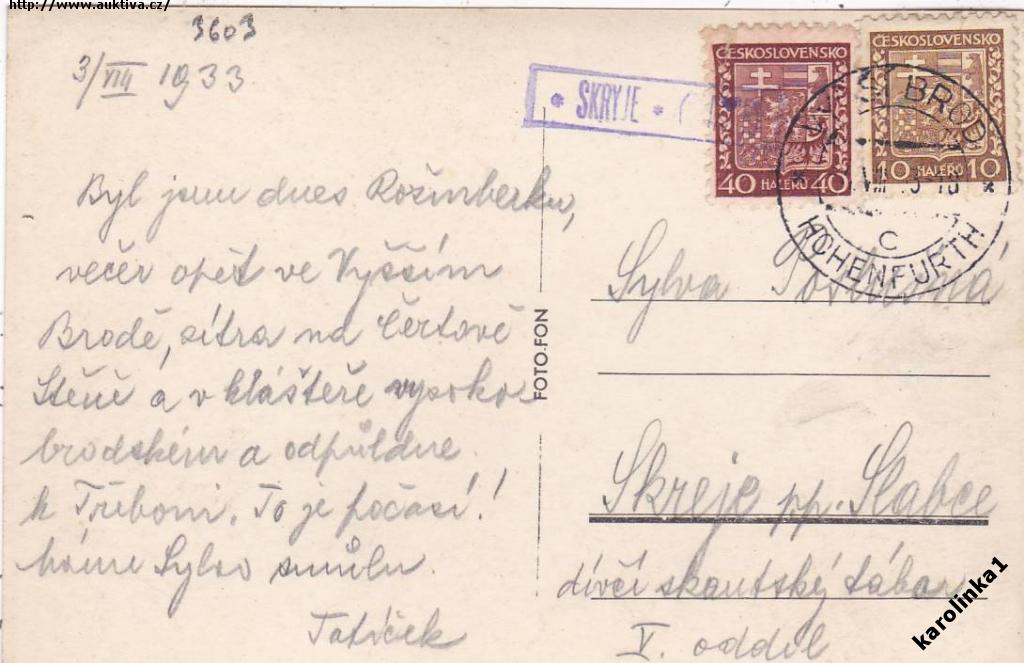 http://www.auktiva.cz/
3603
3/VIII 1933
Byl jsem dnes Rožmberku,
večer opět ve Vyšším
Brodě, zítra na Čertově
Stěně a v klášteře vysoko
brodském a odpůldne
k Třeboni. To je počasí!
Máme Sylvo smůlu.
Tatíček
FOTO-FON
* SKRYJE * (
ČESKOSLOVENSKO
40 HALÉŘŮ 40
ČESKOSLOVENSKO
10 HALÉŘŮ 10
BROD
VIII
C
HOHENFURTH
Sylva
Skreje pp. Slabce
dívčí skautský tábor
V. oddíl
karolinka1